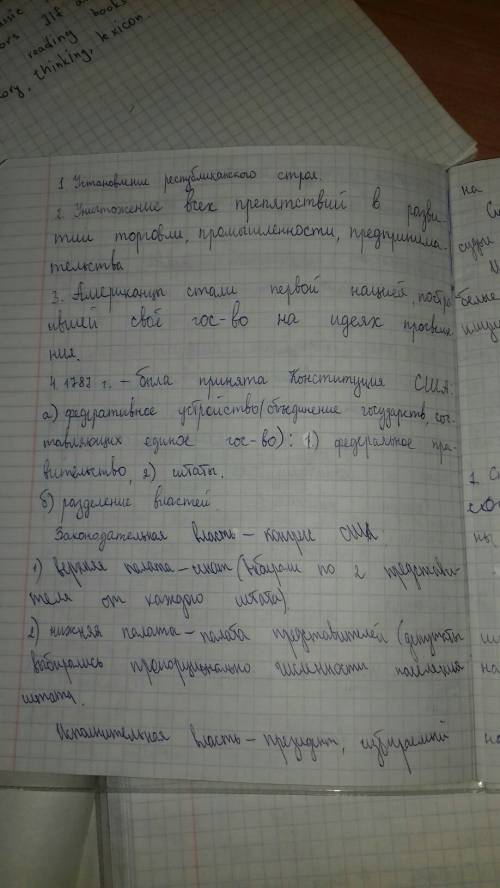 usic
ors If a
reading books
ory, thinking, lexicon.
1 Установление республиканского строя.
2. Уничтожение всех препятствий в разви-
тии торговли, промышленности, предпринима-
тельства
3. Американцы стали первой нацией, постро
ившей своё гос-во на идеях просвеще
ния.
4. 1787 г. – была принята Конституция США:
а) федеративное устройство (объединение государств, сос-
тавляющих единое гос-во): 1) федеральное пра-
вительство, 2) штаты.
б) разделение властей.
Законодательная власть – конгресс США
1) верхняя палата – сенат (выбирали по 2 представи-
теля от каждого штата)
2) нижняя палата – палата представителей (депутаты
выбирались пропорционально численности населения
штата.
Исполнительная власть – президент, избираемый
на
судьи
белые